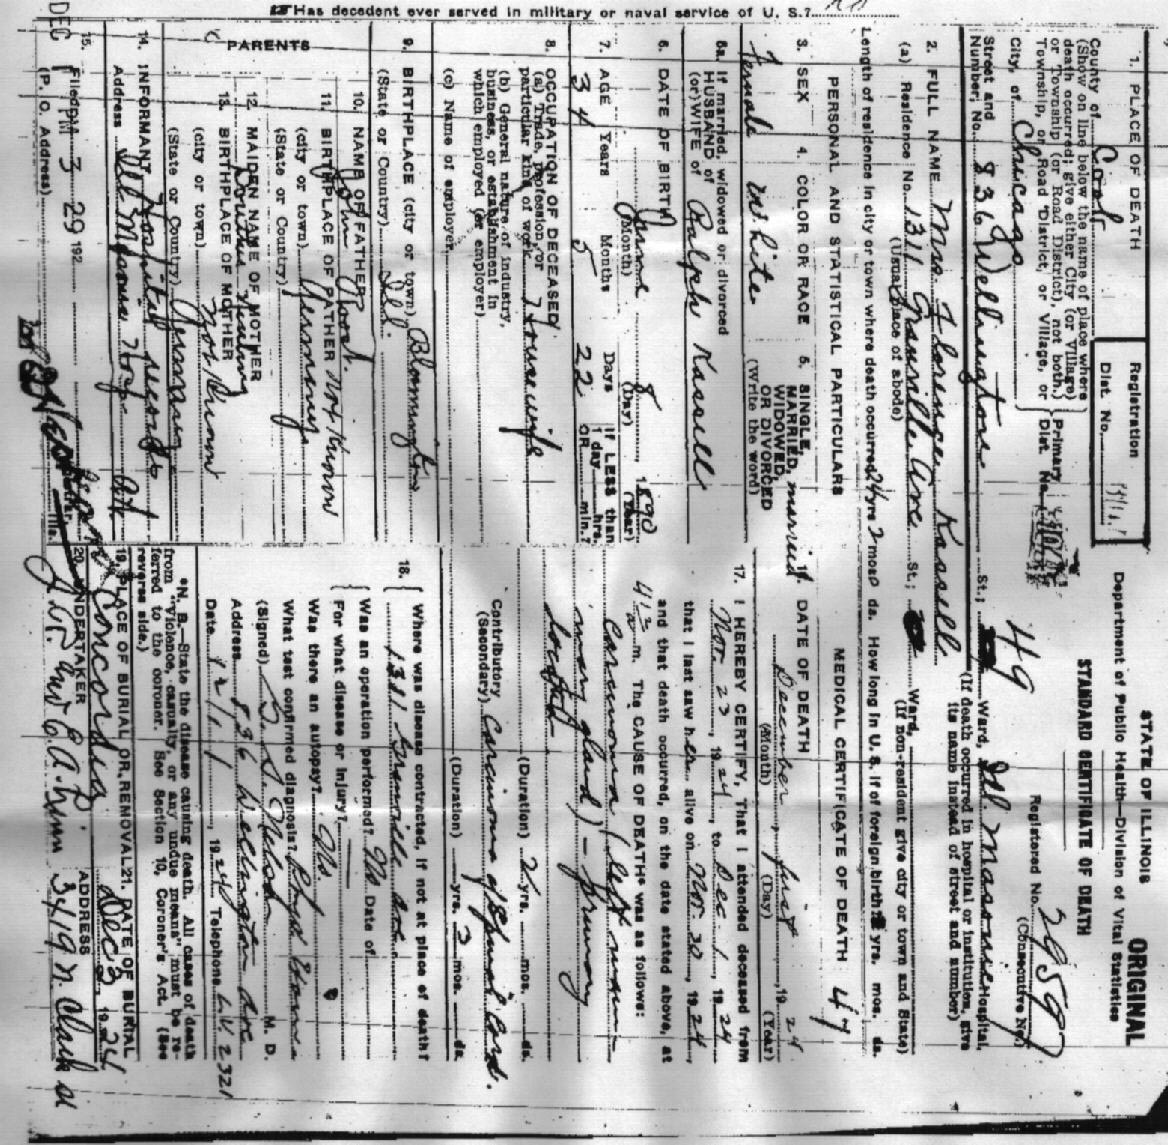 STATE OF ILLINOIS
ORIGINAL
Department of Public Health—Division of Vital Statistics
STANDARD CERTIFICATE OF DEATH
1. PLACE OF DEATH
Registration
Dist. No.
County of Cook
(Show on line below the name of place where
death occurred; give either City (or Village)
or Township (or Road District), not both.)
Township, or Road District, or Village, or
City, of Chicago
Primary
Dist. No.
Registered No.
(Consecutive No.)
Street and
Number, No. 836 Wellington St.; 49 Ward, Ill. Masonic Hospital.
(If death occurred in hospital or institution, give
its name instead of street and number)
2. FULL NAME Mrs. Florence Kassell
(a) Residence No. 1311 Granville Ave St.; Ward,
(Usual place of abode)
(If non-resident give city or town and State)
Length of residence in city or town where death occurred 24 yrs 7 mos 0 ds. How long in U. S. if of foreign birth? yrs. mos. ds.
PERSONAL AND STATISTICAL PARTICULARS
3. SEX
Female
4. COLOR OR RACE
White
5. SINGLE,
MARRIED,
WIDOWED,
OR DIVORCED
(Write the word)
married
5a. If married, widowed or divorced
HUSBAND of
(or) WIFE of Ralph Kassell
6. DATE OF BIRTH June 8, 1890
(Month) (Day) (Year)
7. AGE Years Months Days
34 5 22
If LESS than
1 day hrs.
OR min.?
8. OCCUPATION OF DECEASED
(a) Trade, profession, or
particular kind of work Housewife
(b) General nature of industry,
business, or establishment in
which employed (or employer)
(c) Name of employer
9. BIRTHPLACE (city or town) Bloomington
(State or Country) Ill.
PARENTS
10. NAME OF FATHER
John
11. BIRTHPLACE OF FATHER Not Known
(city or town)
(State or Country) Germany
12. MAIDEN NAME OF MOTHER
13. BIRTHPLACE OF MOTHER
(city or town) Not Known
(State or Country) Germany
14. INFORMANT Hospital records
Address Ill Masonic Hosp.
15.
DEC 1
Filed PM 3 29 192
(P. O. Address)
MEDICAL CERTIFICATE OF DEATH 47
16. DATE OF DEATH
December, first, 1924
(Month) (Day) (Year)
17. I HEREBY CERTIFY, That I attended deceased from
Nov. 23, 1924, to Dec 1, 1924
that I last saw her alive on Nov. 30, 1924,
and that death occurred, on the date stated above, at
m. The CAUSE OF DEATH* was as follows:
Carcinoma (left mam-
mary gland) – primary
(Duration) 2 yrs. mos. ds.
Contributory Carcinoma of Spinal Cord.
(Secondary)
(Duration) yrs. 3 mos. ds.
18. Where was disease contracted, if not at place of death?
1311 Granville Ave
Was an operation performed? No Date of
For what disease or injury?
Was there an autopsy? No.
What test confirmed diagnosis?
(Signed) M. D.
Address 836 Wellington Ave
Date 12/1, 1924 Telephone L.V. 2321
*N. B.—State the disease causing death. All cases of death
from "violence, casualty, or any undue means" must be re-
ferred to the coroner. See Section 10, Coroner's Act. (See
reverse side.)
19. PLACE OF BURIAL OR REMOVAL
Concordia
21. DATE OF BURIAL
Dec 3, 1924
20. UNDERTAKER
ADDRESS
3419 N. Clark St
Has decedent ever served in military or naval service of U. S.? no